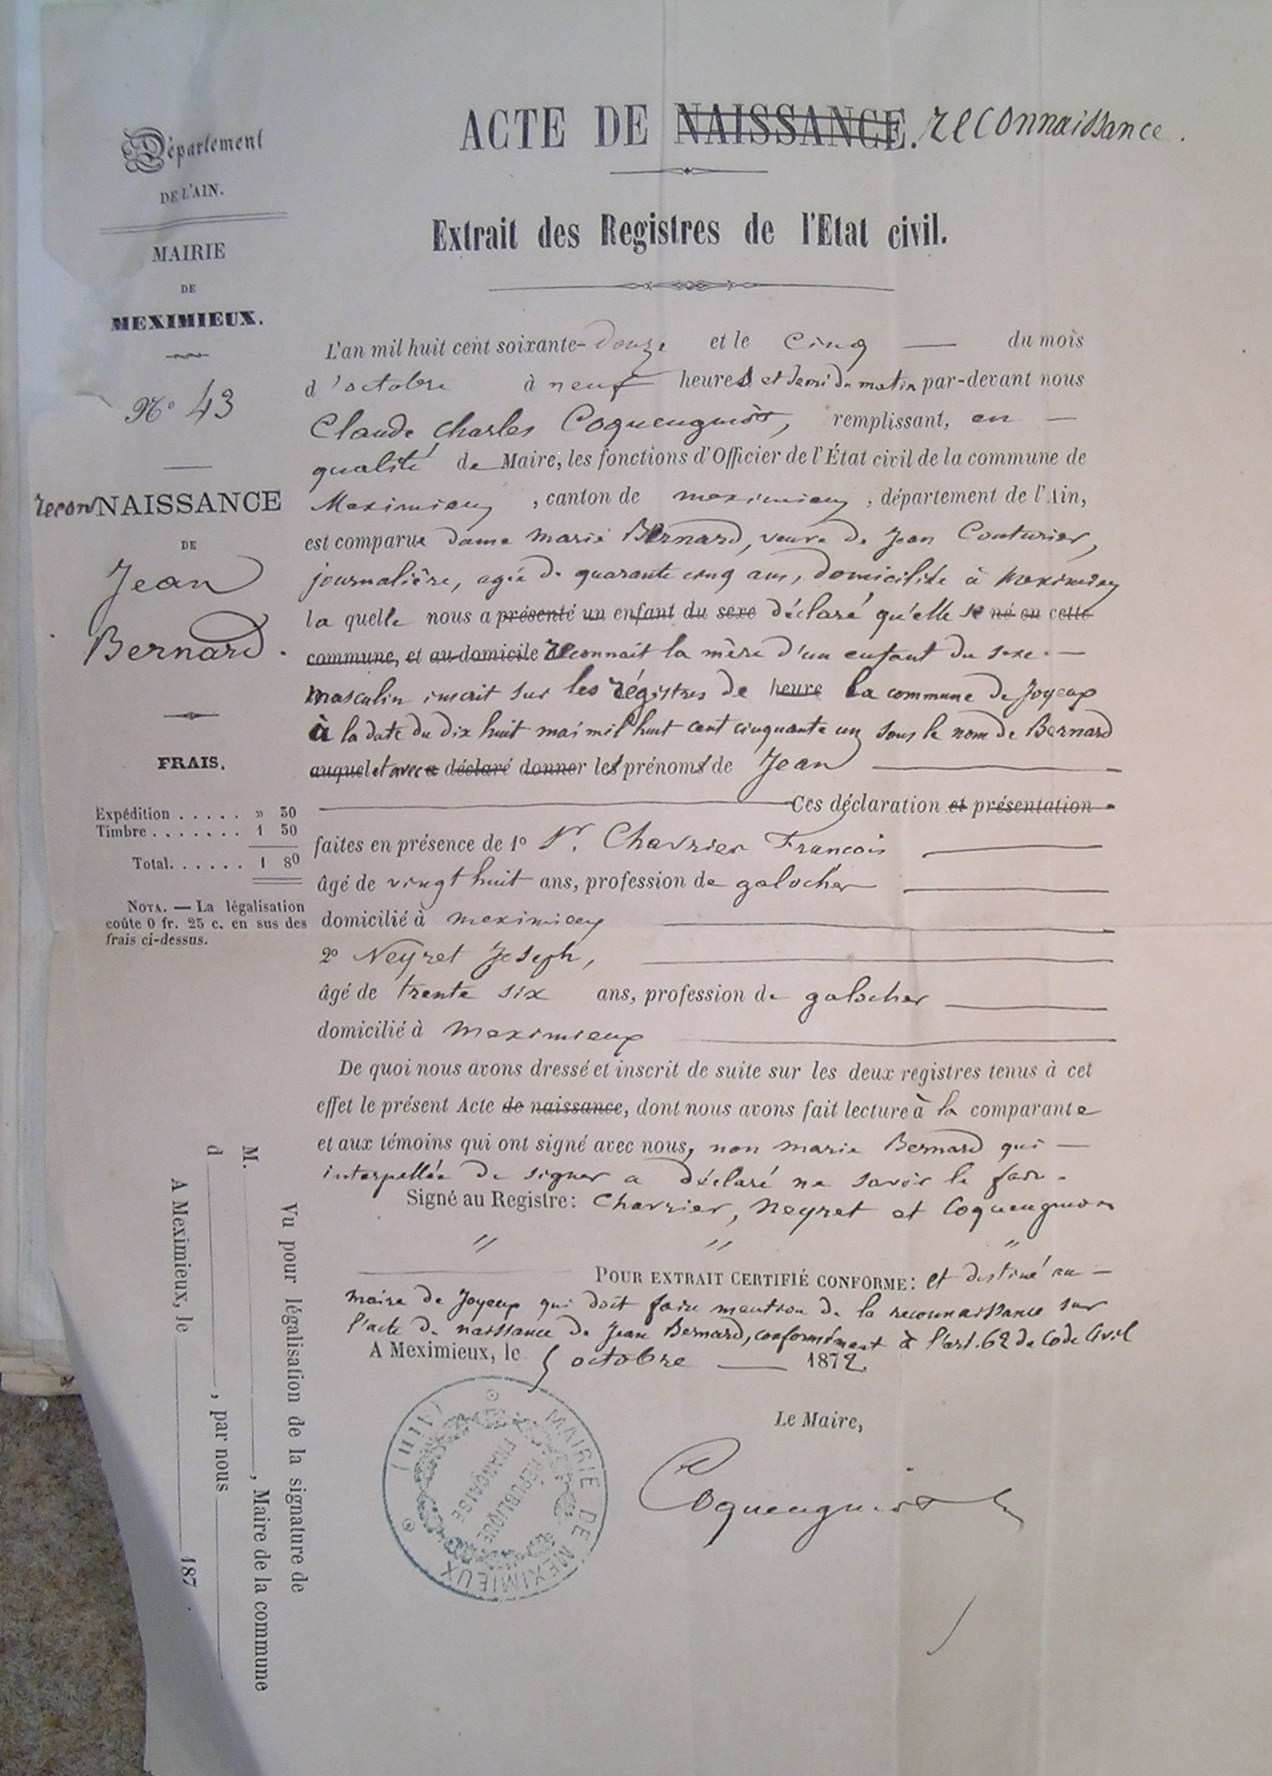 ACTE DE NAISSANCE. reconnaissance.
Extrait des Registres de l'Etat civil.
Département
DE L'AIN.
MAIRIE
DE
MEXIMIEUX.
N° 43
reconNAISSANCE
DE
Jean
Bernard.
FRAIS.
Expédition . . . . . » 30
Timbre . . . . . . . 1 50
Total. . . . . . 1 80
NOTA. — La légalisation
coûte 0 fr. 25 c. en sus des
frais ci-dessus.
L'an mil huit cent soixante-douze et le cinq — du mois
d'octobre à neuf heures et demi du matin par-devant nous
Claude Charles Coqueugniot, remplissant, en —
qualité de Maire, les fonctions d'Officier de l'État civil de la commune de
Meximieux, canton de meximieux, département de l'Ain,
est comparue dame Marie Bernard, veuve de Jean Couturier,
journalière, agée de quarante cinq ans, domiciliée à Meximieux
la quelle nous a présenté un enfant du sexe déclaré qu'elle se né en cette
commune, et au domicile reconnait la mère d'un enfant du sexe —
masculin inscrit sur les régistres de heure la commune de Joyeux
à la date du dix huit mai mil huit cent cinquante un sous le nom de Bernard
auquel et avec a déclaré donner les prénoms de Jean
Ces déclaration et présentation
faites en présence de 1° Sr. Chavrier Francois
âgé de vingt huit ans, profession de galocher
domicilié à meximieux
2° Neyret Joseph,
âgé de trente six ans, profession de galocher
domicilié à Meximieux
De quoi nous avons dressé et inscrit de suite sur les deux registres tenus à cet
effet le présent Acte de naissance, dont nous avons fait lecture à la comparante
et aux témoins qui ont signé avec nous, non marie Bernard qui —
interpellée de signer a déclaré ne savoir le faire.
Signé au Registre: Chavrier, Neyret et Coqueugniot
" " "
POUR EXTRAIT CERTIFIÉ CONFORME: et destiné au —
maire de Joyeux qui doit faire mention de la reconnaissance sur
l'acte de naissance de Jean Bernard, conformément à l'art. 62 du Code Civil
A Meximieux, le 5 octobre — 1872.
Le Maire,
Coqueugniot
MAIRIE DE MEXIMIEUX (AIN)
RÉPUBLIQUE
FRANÇAISE
Vu pour légalisation de la signature de
M. , Maire de la commune
d , par nous
A Meximieux, le 187